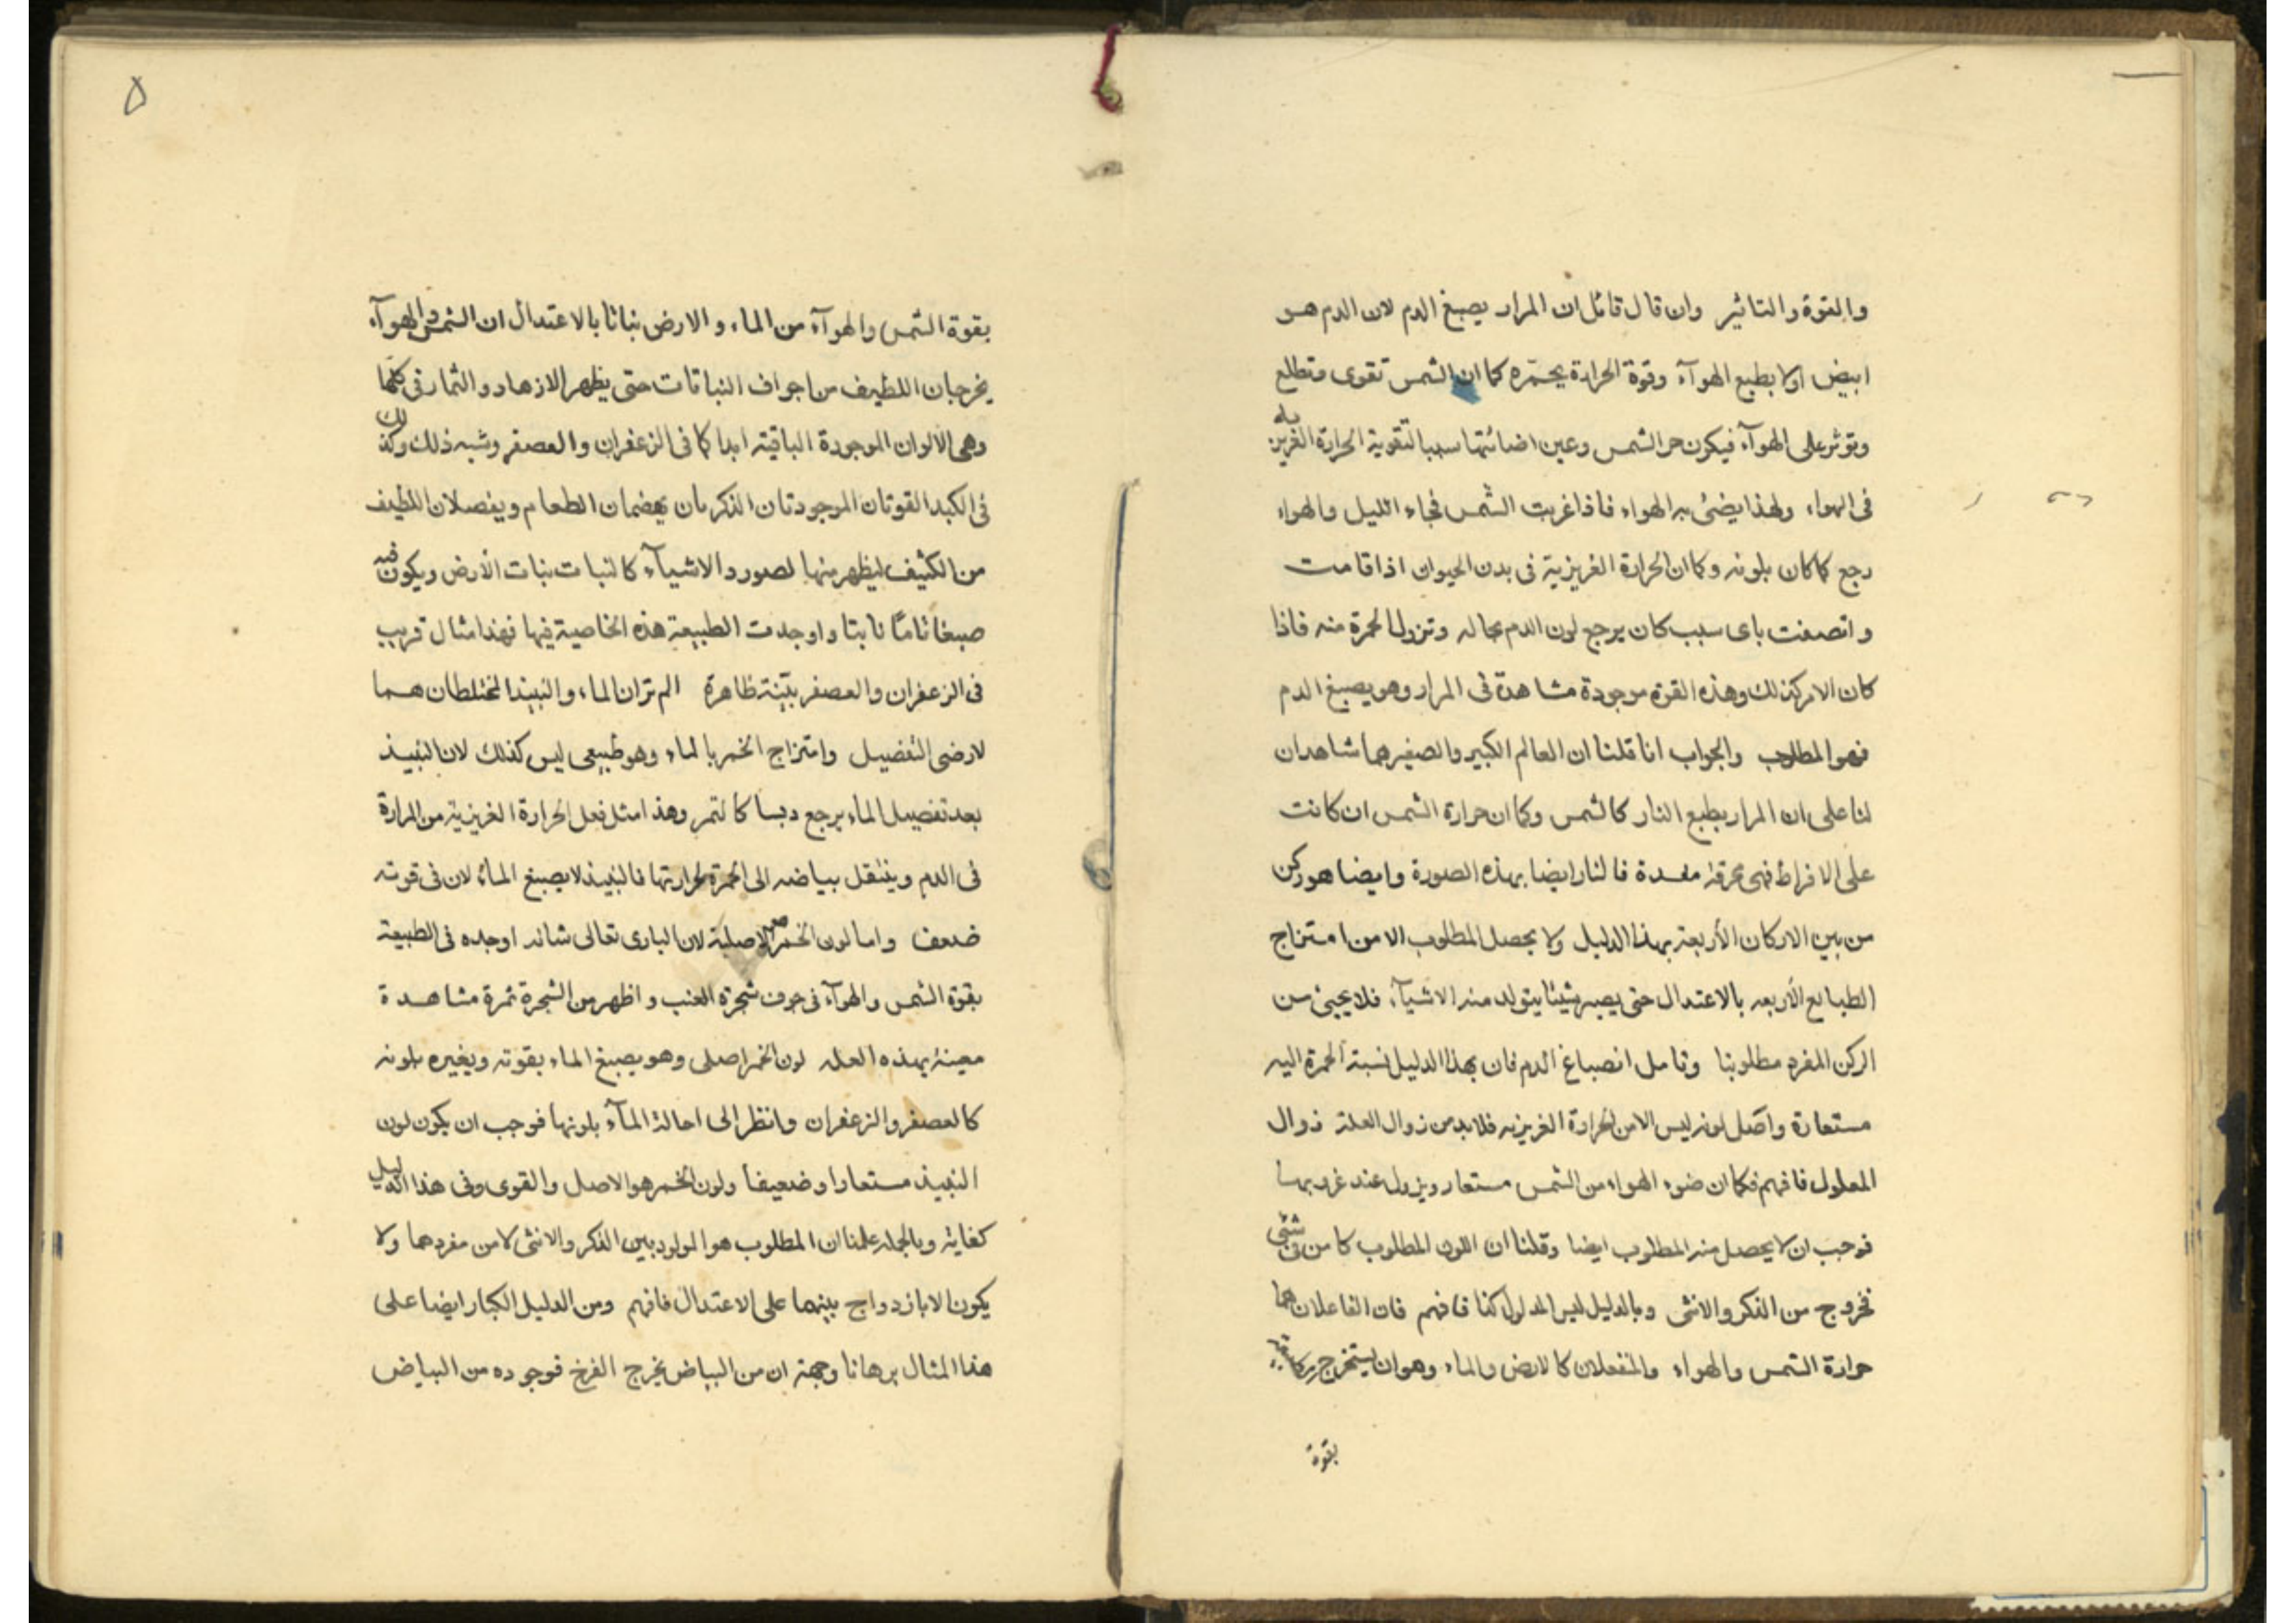 والقوة والتاثير وان قال قائل ان المرار يصبغ الدم لان الدم هو
ابيض اولا بطبع الهوآء وقوة الحرارة يحمّره كما ان الشمس تقوى وتطلع
وتوثر على الهوآء فيكون حر الشمس وعين اضائتها سببا لتقوية الحرارة الغريزية
فى الهواء ولهذا يضئ به الهواء فاذا غربت الشمس فجاء الليل والهواء
رجع كما كان بلونه وكما ان الحرارة الغريزية فى بدن الحيوان اذا قامت
واتصفت باى سبب كان يرجع لون الدم بحاله وتزول الحمرة منه فاذا
كان الامر كذلك وهذه القوة موجودة مشاهدة فى المرار وهو يصبغ الدم
فهو المطلوب والجواب انا قلنا ان العالم الكبير والصغير هما شاهدان
لنا على ان المرار بطبع النار كالشمس وكما ان حرارة الشمس ان كانت
على الافراط فهى محرقة مفسدة فالنار ايضا بهذه الصورة وايضا هو ركن
من بين الاركان الأربعة بهذا الدليل ولا يحصل المطلوب الا من امتزاج
الطبايع الأربعه بالاعتدال حتى يصير شيئا يتولد منه الاشيآء فلا يجيئ من
الركن المفرد مطلوبنا وتامل انصباغ الدم فان بهذا الدليل نسبة الحمرة اليه
مستعارة واصل لونه ليس الا من الحرارة الغريزيه فلا بد من زوال العلة زوال
المعلول فافهم فكما ان ضوء الهواء من الشمس مستعار ويزول عند غروبها
فوجب ان لا يحصل منه المطلوب ايضا وقلنا ان اللون المطلوب كا من شئ
فخروج من الذكر والانثى وبالدليل ليس المدلول كذا فافهم فان الفاعلان هما
حرارة الشمس والهواء والمنفعلان كالارض والماء وهو ان يستخرج
بقوة
٥
بقوة الشمس والهوآء من الماء والارض نباتا بالاعتدال ان الشمس والهوآء
يخرجان اللطيف من اجواف النباتات حتى يظهر الازهار والثمار فى كلها
وهى الألوان الموجودة الباقية ابدا كما فى الزعفران والعصفر وشبه ذلك وكذلك
فى الكبد القوتان الموجودتان الذكر بان يهضمان الطعام ويفصلان اللطيف
من الكثيف ليظهر منها لصور والاشيآء كالنبات بنات الأرض ويكون فيه
صبغا تامّا ثابتا واوجدت الطبيعة هذه الخاصية فيها فهذا مثال قريب
فى الزعفران والعصفر بيّنة ظاهرة الم تر ان الماء والنبيذ المختلطان هما
لارضى التفصيل وامتزاج الخمر بالماء وهو طبيعى ليس كذلك لان النبيذ
بعد تفصيل الماء يرجع دبسا كالتمر وهذا مثل فعل الحرارة الغريزية من المرارة
فى الدم وينتقل بياضه الى الحمرة لحرارتها فالنبيذ لا يصبغ الماء لان فى قوته
ضعف واما لون الخمر الاصلية لان البارى تعالى شانه اوجده فى الطبيعة
بقوة الشمس والهوآء فى جوف شجرة العنب واظهر من الشجرة ثمرة مشاهدة
معينة بهذه العله لون الخمر اصلى وهو يصبغ الماء بقوته ويغيره بلونه
كالعصفر والزعفران وانظر الى احالة المآء بلونها فوجب ان يكون لون
النبيذ مستعارا وضعيفا ولون الخمر هو الاصل والقوى وفى هذا الدليل
كفاية وبالجمله علمنا ان المطلوب هو المولود بين الذكر والانثى لا من مفردهما ولا
يكون الا بازدواج بينهما على الاعتدال فافهم ومن الدليل الكبار ايضا على
هذا المثال برهانا وجهة ان من البياض يخرج الفرخ فوجوده من البياض